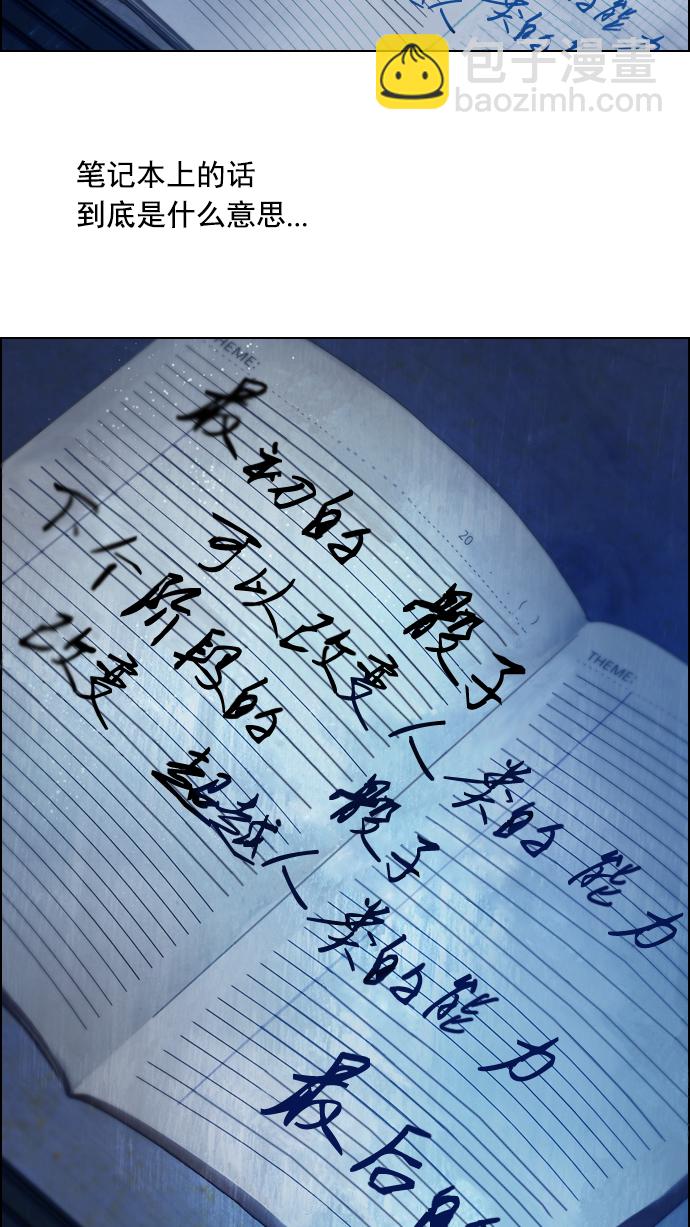 人类的能力
包子漫畫
baozimh.com
笔记本上的话
到底是什么意思...
THEME:
20 . . ( )
最初的 骰子
可以改变人类的能力
下个阶段的 骰子
改变 超越人类的能力
THEME:
最后的